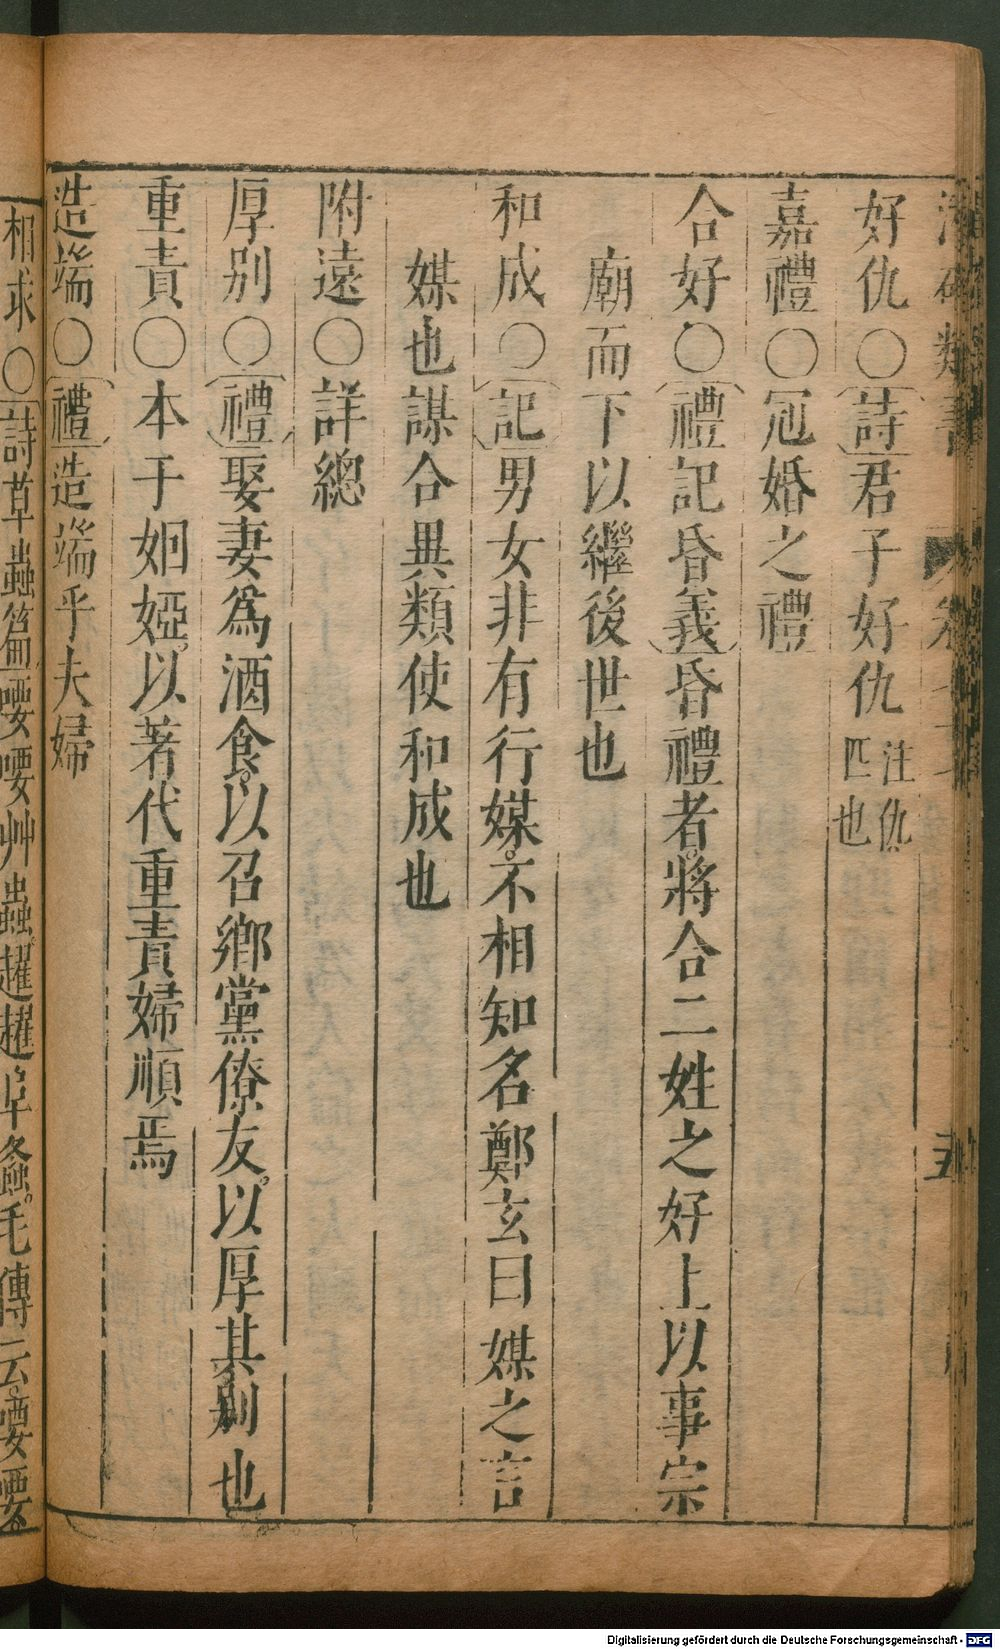 好仇○詩君子好仇注仇匹也
嘉禮○冠婚之禮
合好○禮記昏義昏禮者將合二姓之好上以事宗
廟而下以繼後世也
和成○記男女非有行媒不相知名鄭玄曰媒之言
媒也謀合異類使和成也
附遠○詳總
厚别○禮娶妻爲酒食以召鄉黨僚友以厚其别也
重責○本于姻婭以著代重責婦順焉
造端○禮造端乎夫婦
相求○詩草蟲篇喓喓艸蟲趯趯阜螽毛傳云喓喓
Digitalisierung gefördert durch die Deutsche Forschungsgemeinschaft - DFG